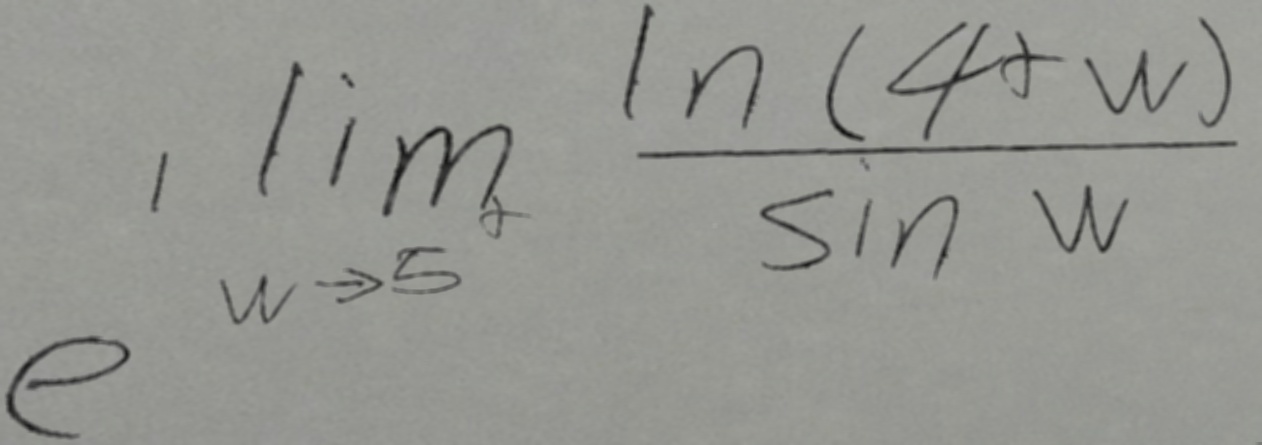 e^{\lim_{w \to 5^+} \frac{\ln(4+w)}{\sin w}}